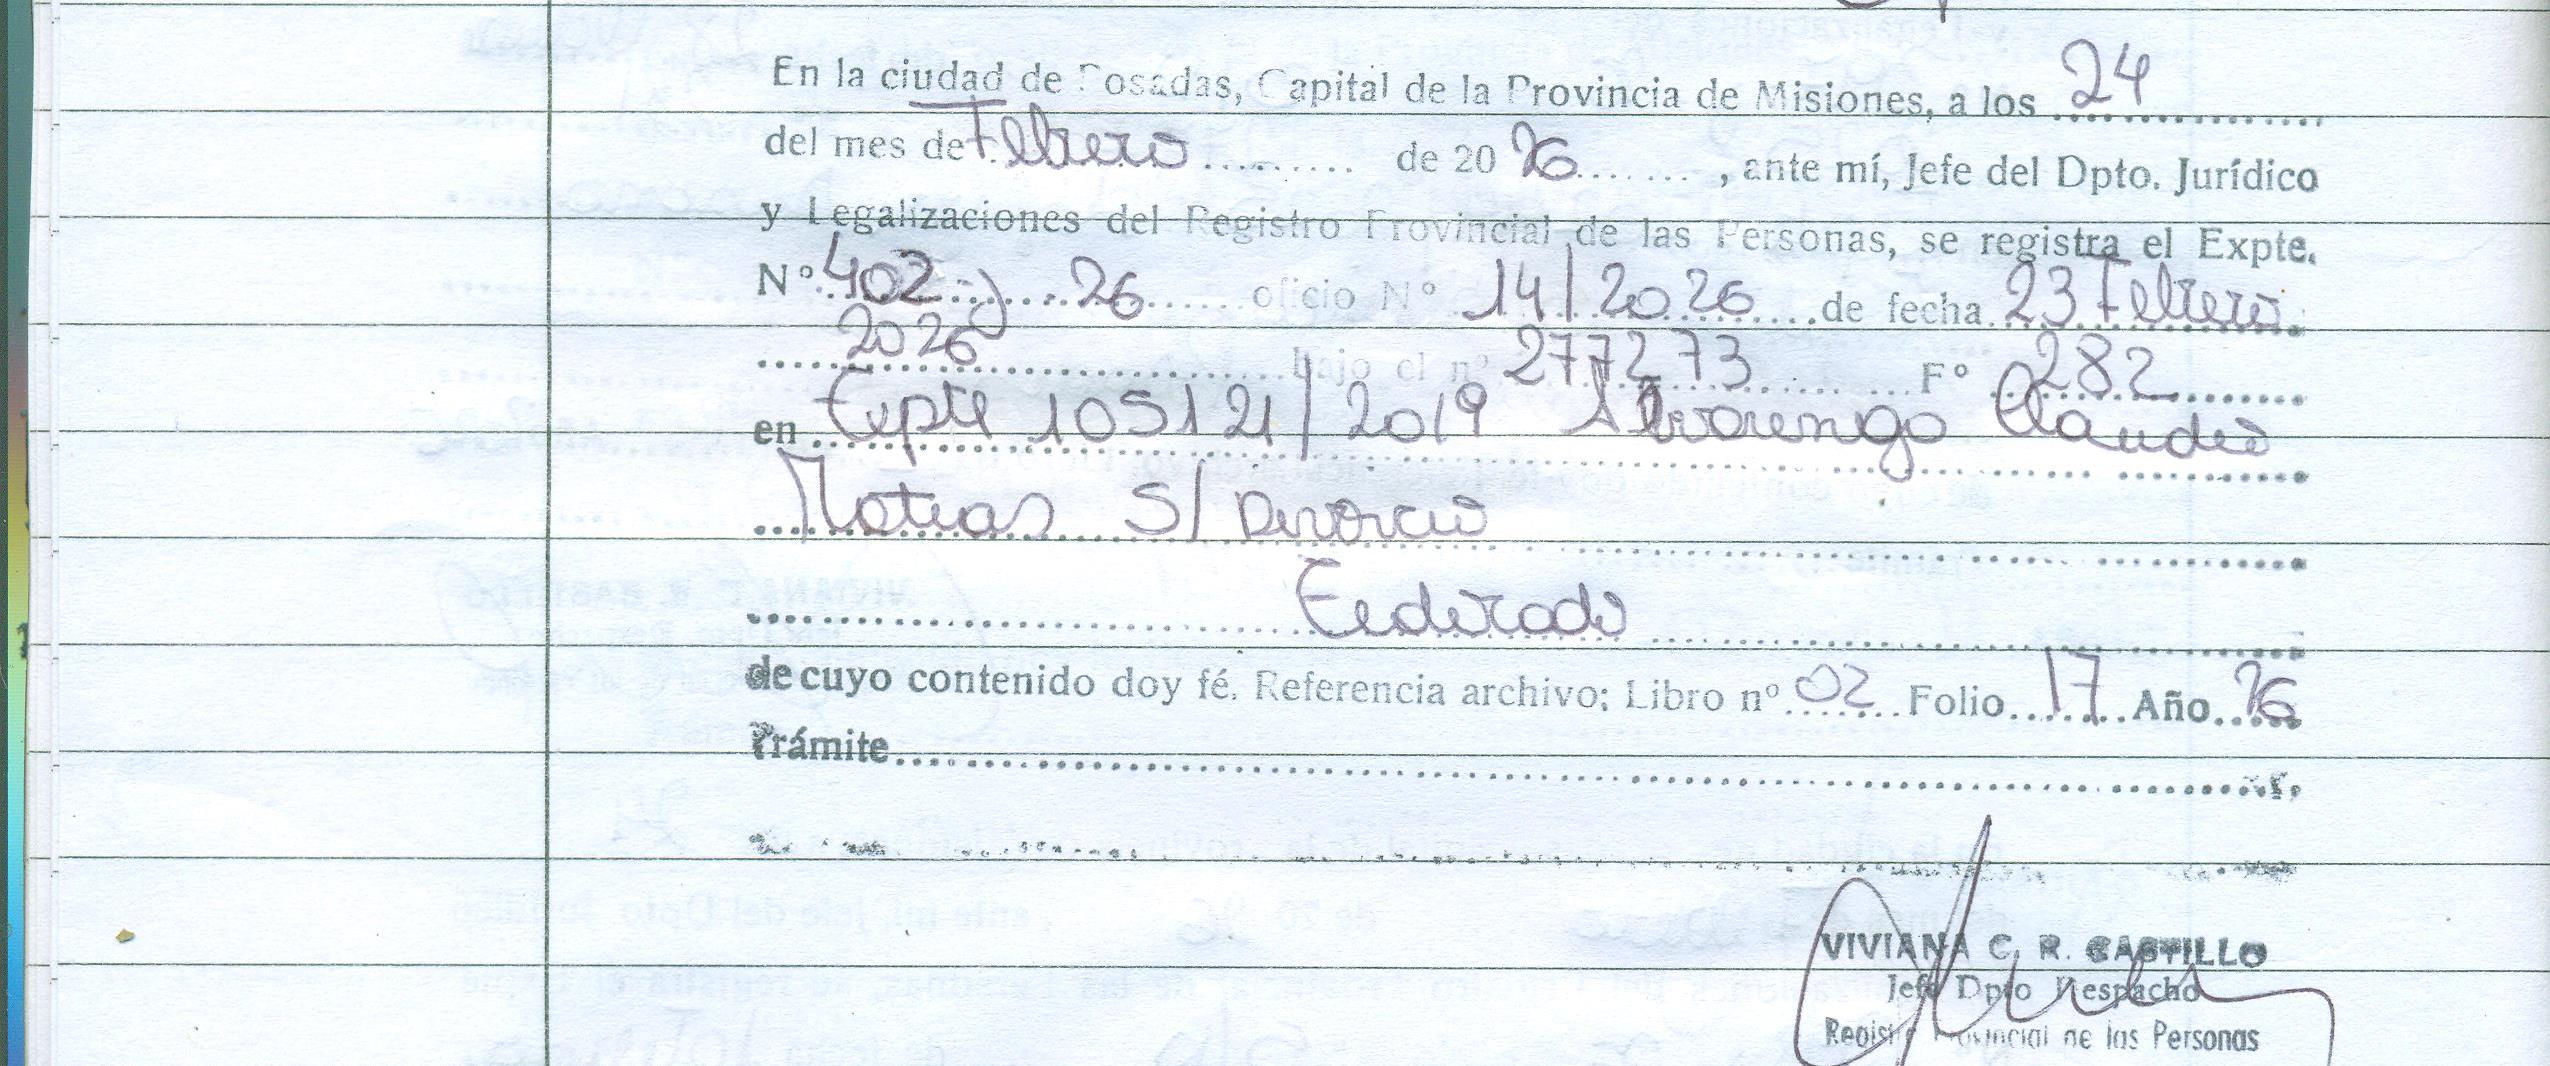 En la ciudad de Posadas, Capital de la Provincia de Misiones, a los 24
del mes de Febrero de 20 26 , ante mí, Jefe del Dpto. Jurídico
y Legalizaciones del Registro Provincial de las Personas, se registra el Expte.
Nº 402-J 26 oficio Nº 14/2026 de fecha 23 Febrero
2026 bajo el nº 277273 Fº 282
en Expte 105121/2019 Alvarenga Claudio
Matias S/ Divorcio
Eldorado
de cuyo contenido doy fé. Referencia archivo: Libro nº 02 Folio 17 Año 26
Trámite
VIVIANA C. R. CASTILLO
Jefe Dpto Despacho
Registro Provincial de las Personas